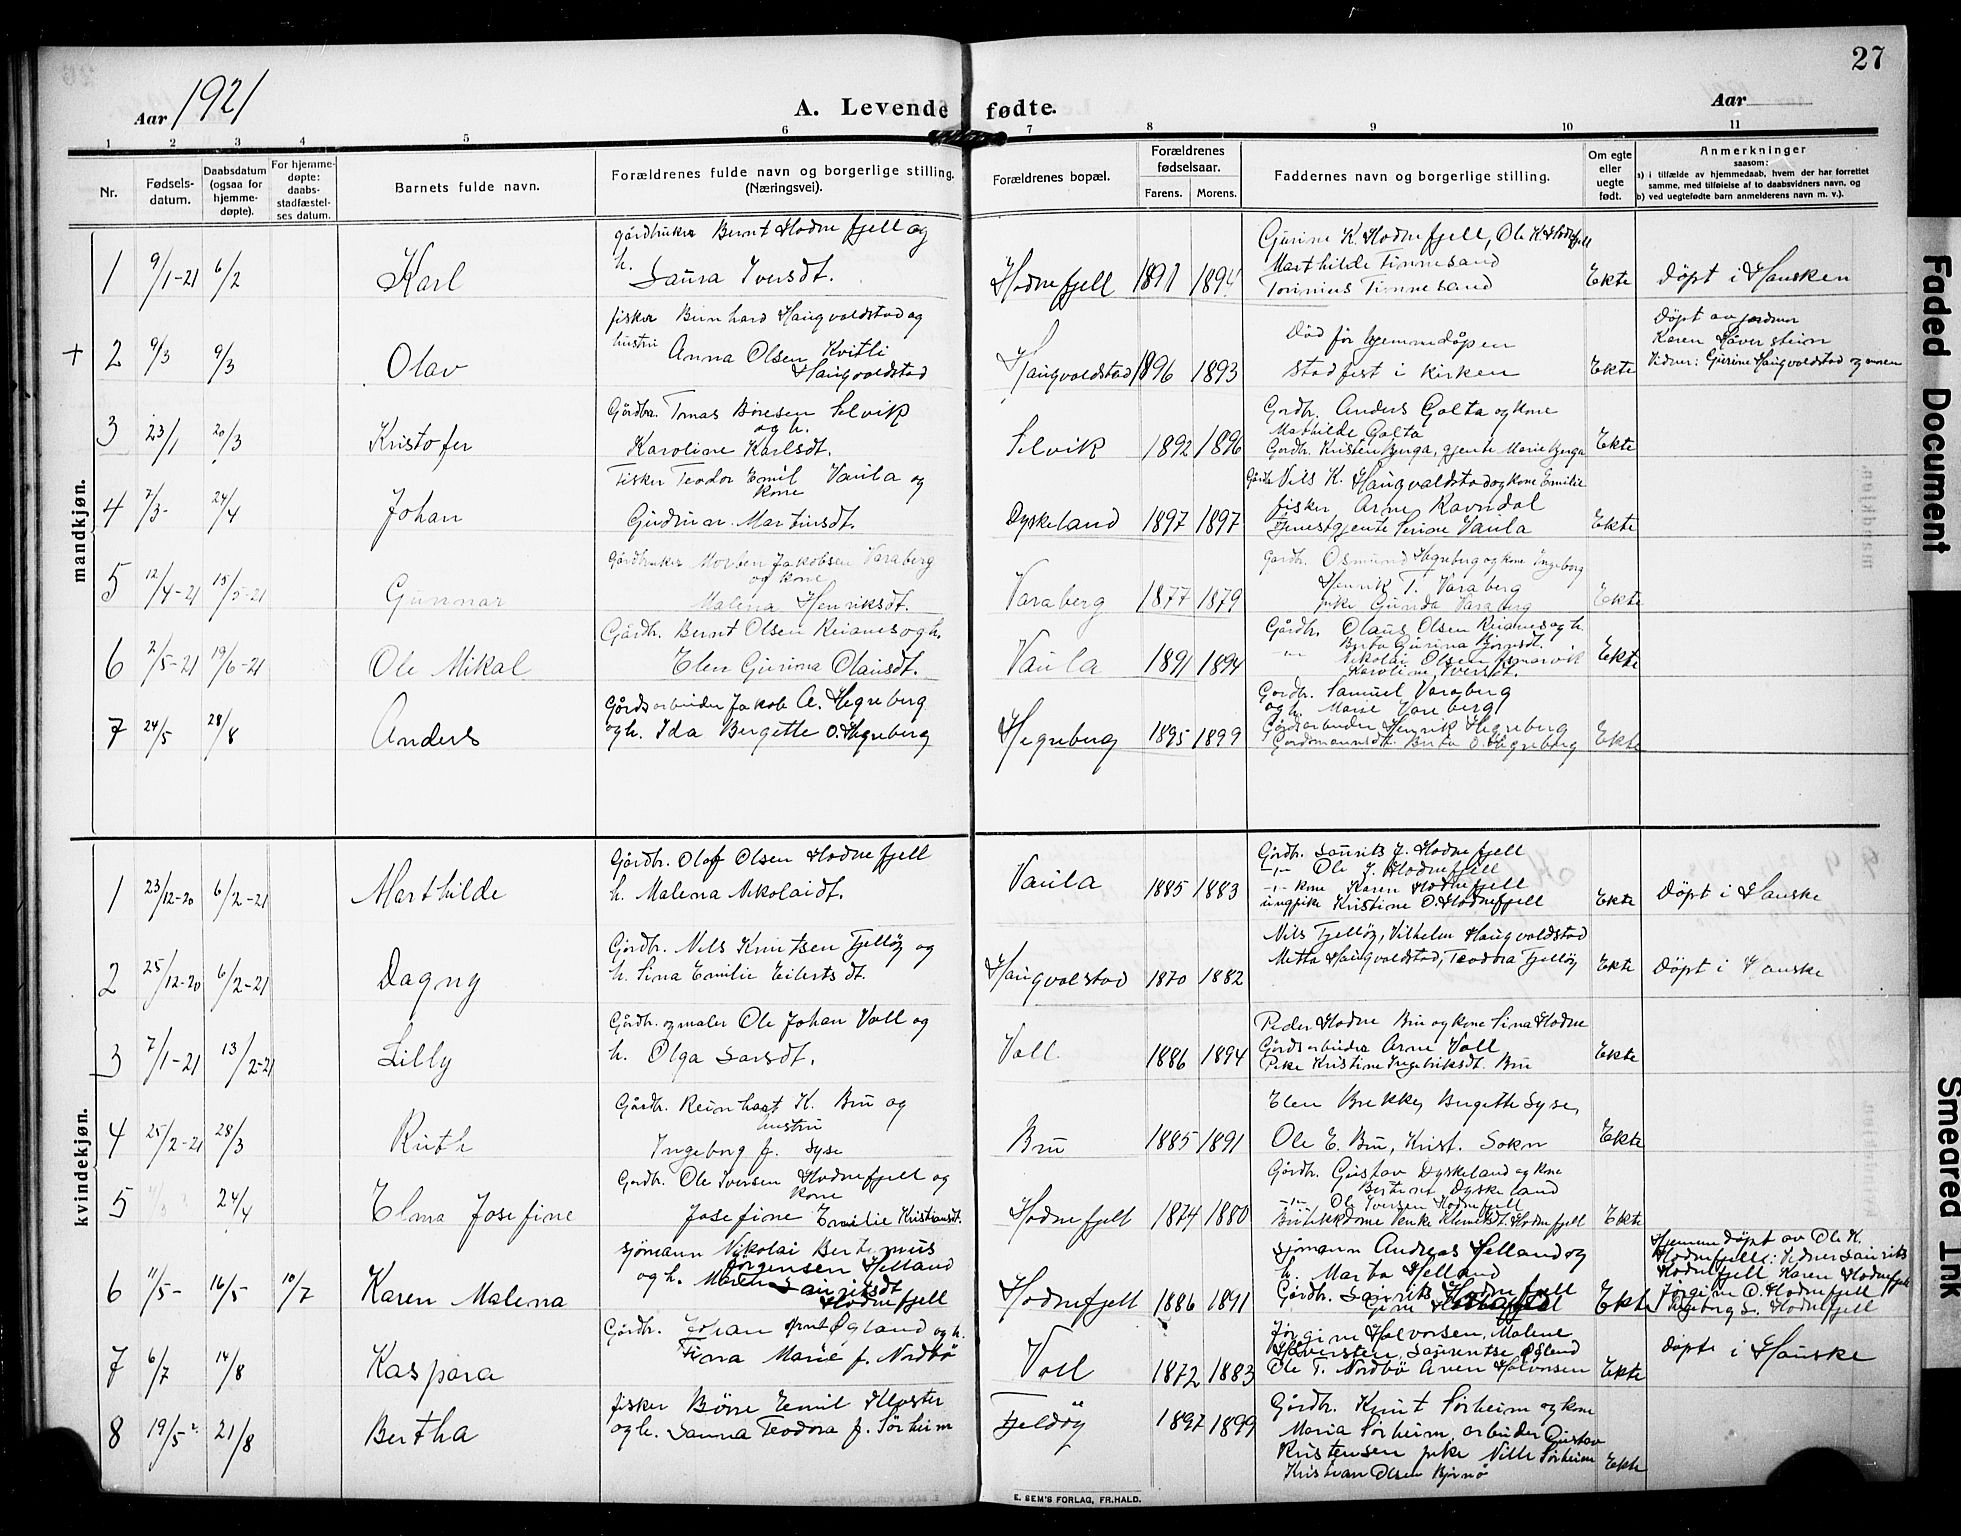 27
Aar 1921
A. Levende fødte.
Aar
1 2 3 4 5 6 7 8 9 10 11
Nr.
Fødsels-
datum.
Daabsdatum
(ogsaa for
hjemme-
døpte).
For hjemme-
døpte:
daabs-
stadfæstel-
ses datum.
Barnets fulde navn.
Forældrenes fulde navn og borgerlige stilling.
(Næringsvei).
Forældrenes bopæl.
Forældrenes
fødselsaar.
Farens. Morens.
Faddernes navn og borgerlige stilling.
Om egte
eller
uegte
født.
Anmerkninger
saasom:
a) i tilfælde av hjemmedaab, hvem der har forrettet
samme, med tilføielse af to daabsvidners navn, og
b) ved uegtefødte barn anmelderens navn m. v.).
mandkjøn.
1 9/1-21 6/2 Karl
gårdbruker Bernt Hodnefjell og
h. Laura Iversdt.
Hodnefjell 1891 1894
Gurine K. Hodnefjell, Ole K. Hodnefjell
Marthilde Finnesand
Torinius Finnesand
Ekte Døpt i Hausken
+ 2 9/3 9/3 Olav
fisker Bernhard Haugvaldstad og
hustru Anna Olsen Kvitli
Haugvaldstad
Haugvaldstad 1896 1893
Død før hjemmedåpen
stadfest i kirken
Ekte
Døpt av jordmor
Karen
Vidner: Gurine Haugvaldstad og moren
3 23/1 20/3 Kristofer
Gårdbr. Tomas Børesen Selvik
og h.
Karoline Karlsdt.
Selvik 1892 1896
Gardbr. Anders Galta og kone
Mathilde Galta
Gardbr. Kristen Bjerga, gjente Marie Bjerga
Ekte
4 7/3- 24/4 Johan
Fisker Teodor Emil Vaula og
kone
Gudmar Martinsdt.
Dyskeland 1897 1897
Gårdbr Nils K. Haugvaldstad og kone Emilie
fisker Arne Ravndal
Tjenestgjente Serine Vaula
Ekte
5 12/4-21 15/5-21 Gunnar
Gårdbruker Morten Jakobsen Varaberg
og kone
Malena Henriksdt.
Varaberg 1877 1879
Gardbr. Osmund Hegreberg og kone Ingeborg
Henrik T. Varaberg
pike Gunda Varaberg
Ekte
6 2/5-21 19/6-21 Ole Mikal
Gårdbr. Bernt Olsen Reianes og h.
Elen Gurina Olausdt.
Vaula 1891 1894
Gårdbr. Olaus Olsen Reianes og h.
Berta Gurina Bjørnsdt.
-"- Nikolai Olsen
Karoline Iversdt.
Ekte
7 24/5 28/8 Anders
Gårdsarbeider Jakob A. Hegreberg
og h. Ida Bergette O. Hegreberg
Hegreberg 1895 1899
Gardbr. Samuel Varaberg
og h. Marie Varaberg
Gårdsarbeider Henrik Hegreberg
Gardsmannsdt. Berta O. Hegreberg
Ekte
kvindekjøn.
1 23/12-20 6/2-21 Marthilde
Gårdbr. Olaf Olsen Hodnefjell
h. Malena Nikolaidt.
Vaula 1885 1883
Gårdbr. Laurits J. Hodnefjell
-"- Ole J. Hodnefjell
-"- kone Karen Hodnefjell
ungpike Kristine O. Hodnefjell
Ekte Døpt i Hauske
2 25/12-20 6/2-21 Dagny
Gårdbr. Nils Knutsen Fjelløy og
h. Sina Emilie Eilertsdt.
Haugvalstad 1870 1882
Nils Fjelløy, Vilhelm Haugvaldstad
Metta Haugvaldstad, Teodora Fjelløy
Ekte Døpt i Hauske
3 7/1-21 13/2-21 Lilly
Gårdbr. og maler Ole Johan Voll og
h. Olga Larsdt.
Voll 1886 1894
Peder Hodne Bru og kone Sina Hodne
Gårdsarbeider Arne Voll
Pike Kristine Ingebriksdt. Bru
Ekte
4 25/2-21 28/3 Ruth
Gårdbr. Reinhart K. Bru og
hustru
Ingeborg f. Syse
Bru 1885 1891
Elen Brekke, Bergette Syse,
Ole E. Bru, Krist. Sokn
Ekte
5 24/4 Elma Josefine
Gardbr. Ole Iversen Hodnefjell og
kone
Josefine Emilie Kristiansdt.
Hodnefjell 1874 1880
Gårdbr. Gustav Dyskeland og kone
Bertine Dyskeland
-"- Ole Iversen Hodnefjell
Butikkdame Venke Klemetsdt. Hodnefjell
Ekte
6 11/5- 16/5 10/7 Karen Malena
sjømann Nikolai Bertinius
Jørgensen Helland
og h. Lauritsdt
Hodnefjell
Hodnefjell 1886 1891
sjømann Andreas Helland og
h. Marta Helland
Gårdbr. Laurits Hodnefjell
Gine
Ekte
Hjemmedøpt av Ole K.
Hodnefjell: Vidner Laurits
Hodnefjell Karen Hodnefjell
Jørgine O. Hodnefjell
Ingeborg L. Hodnefjell
7 6/7 14/8 Kaspara
Gårdbr. Johan Øgland og h.
Tina Marie f. Nordbø
Voll 1872 1883
Jørgine Halvorsen, Malene
Laurentse Øgland
Ole T. Nordbø Halvorsen
Ekte
døpt i Hauske
8 19/5 21/8 Bertha
fisker Børre Emil Kloster
og h. Sanna Teodora f. Sørheim
Fjeldøy 1897 1899
Gårdbr. Knut Sørheim og kone
Maria Sørheim, arbeider Gustav
Kristensen pike Nille Sørheim
Kristian Olsen Bjørnø
Ekte
E. SEM'S FORLAG, FR.HALD.
Faded Document
Smeared Ink